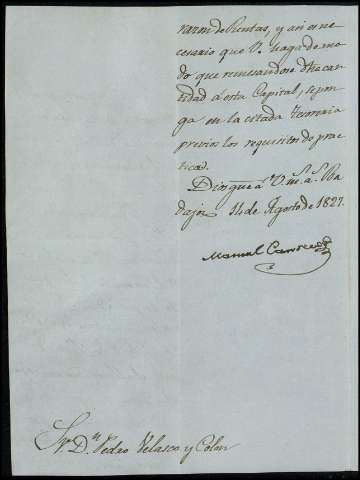 razon de Rentas, y asi es ne
cesario que V. haga de mo
do que remesandose dha can
tidad á esta Capital, se pon
ga en la citada Tesoreria
previos los requisitos de prac
tica.
Dios gue á V. m.s a.s Ba
dajoz 14 de Agosto de 1827.
Manuel
Sr. D.n Pedro Velasco y Colon